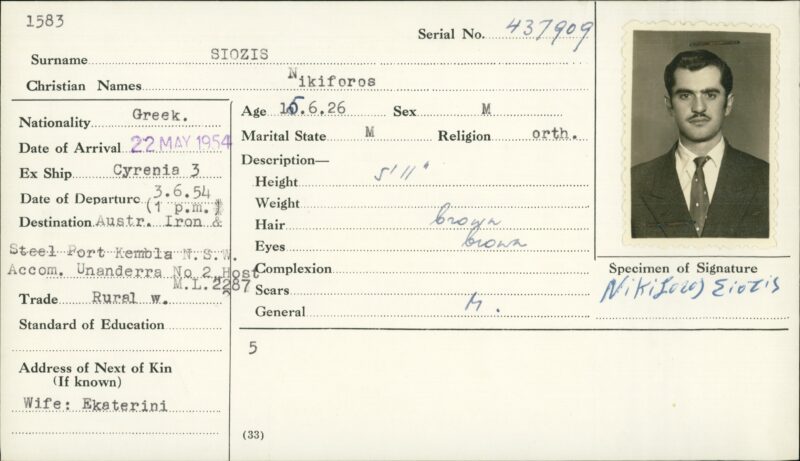 1583
Serial No. 437909
Surname SIOZIS
Christian Names Nikiforos
Nationality Greek.
Date of Arrival 22 MAY 1954
Ex Ship Cyrenia 3
Date of Departure 3.6.54
(1 p.m.)
Destination Austr. Iron &
Steel Port Kembla N.S.W.
Accom. Unanderra No 2 Host
M.L. 2287
Trade Rural w.
Standard of Education
Address of Next of Kin
(If known)
Wife: Ekaterini
Age 15.6.26 Sex M
Marital State M Religion orth.
Description—
Height 5'11"
Weight
Hair brown
Eyes brown
Complexion
Scars
General M.
5
(33)
Specimen of Signature
Nikiforos Siozis